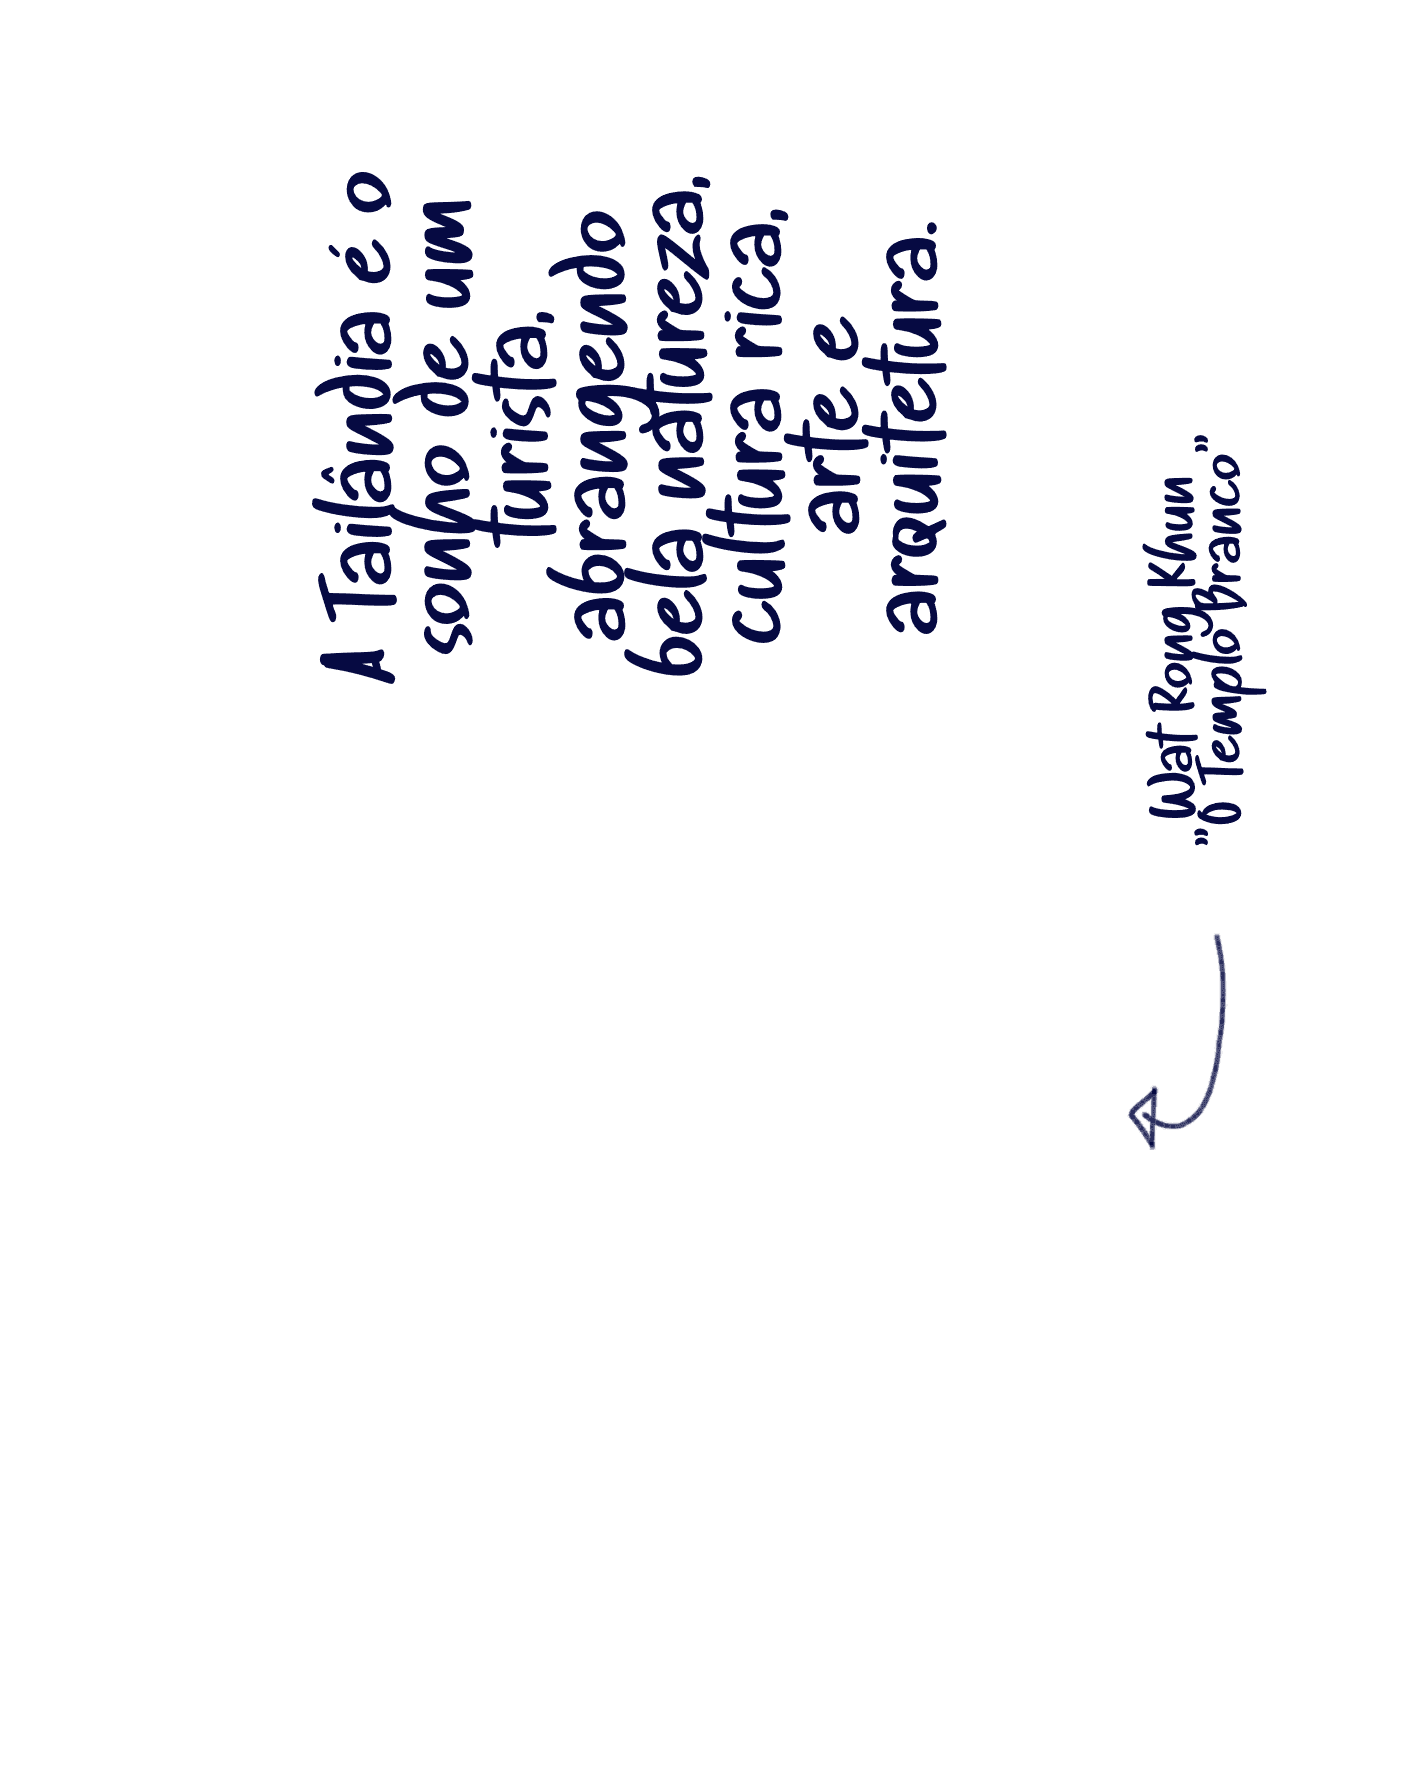 A Tailândia é o
sonho de um
turista,
abrangendo
bela natureza,
cultura rica,
arte e
arquitetura.
Wat Rong Khun
"O Templo Branco"